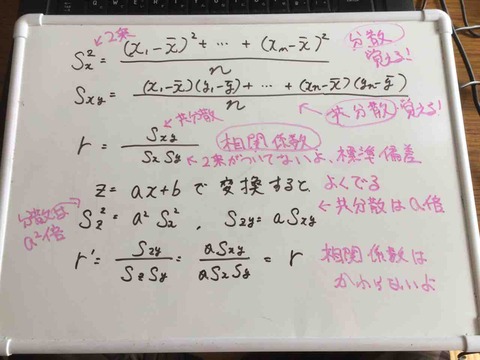 S_x^2 = ((x_1-x̄)^2 + … + (x_n-x̄)^2)/n
←2乗
分散
覚える!
S_xy = ((x_1-x̄)(y_1-ȳ) + … + (x_n-x̄)(y_n-ȳ))/n
共分散 覚える!
r = S_xy/(S_x S_y)
←共分散
相関係数
←2乗がついてないよ、標準偏差
z = ax+b で変換すると
よくでる
分散は a^2倍
S_z^2 = a^2 S_x^2 , S_zy = a S_xy
←共分散はa倍
r' = S_zy/(S_z S_y) = a S_xy/(a S_x S_y) = r
相関係数は
かわらないよ